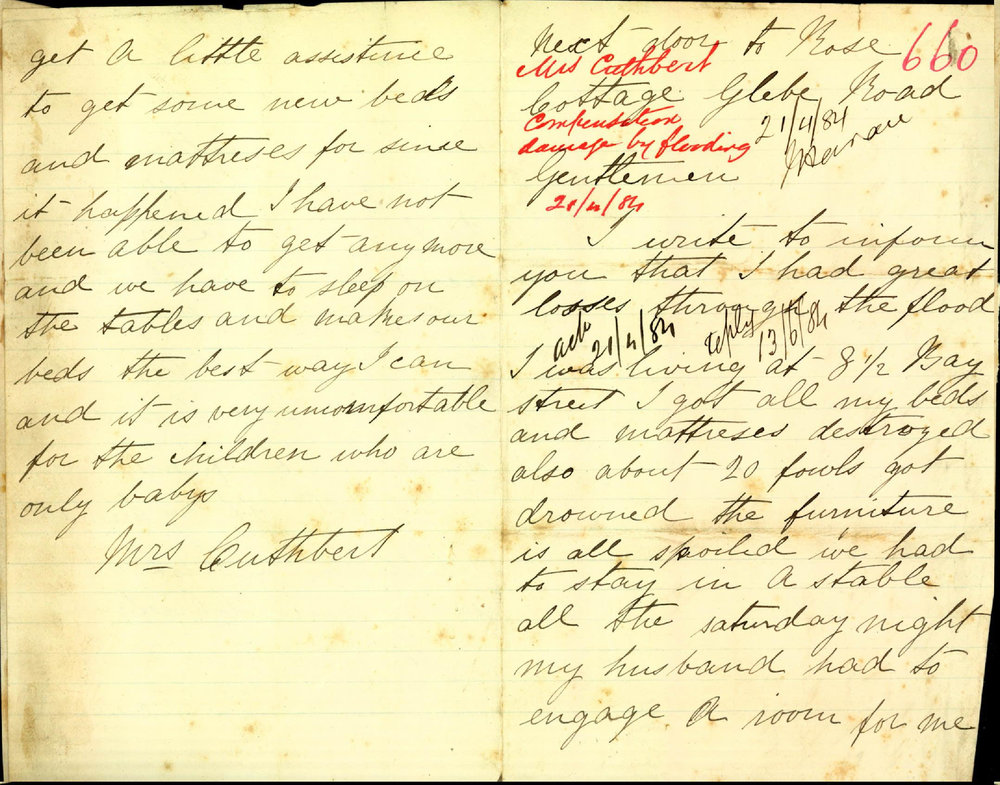 Next door to Rose
660
Mrs Cuthbert
Cottage Glebe Road
Compensation
damage by flooding
21/4/84
Gentlemen
21/4/84
I write to inform
you that I had great
losses through the flood
ack 21/4/84 reply 13/6/84
I was living at 8 1/2 Bay
street I got all my beds
and mattreses destroyed
also about 20 fowls got
drowned the furniture
is all spoiled we had
to stay in a stable
all the saturday night
my husband had to
engage a room for me
get a little assistince
to get some new beds
and mattreses for since
it happened I have not
been able to get any more
and we have to sleep on
the tables and makes our
beds the best way I can
and it is very uncomfortable
for the children who are
only babys
Mrs Cuthbert